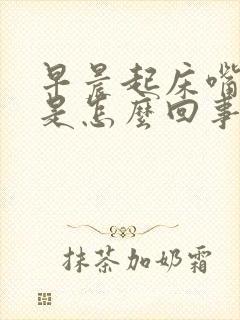 早晨起床嘴
是怎麼回事
抹茶加奶霜